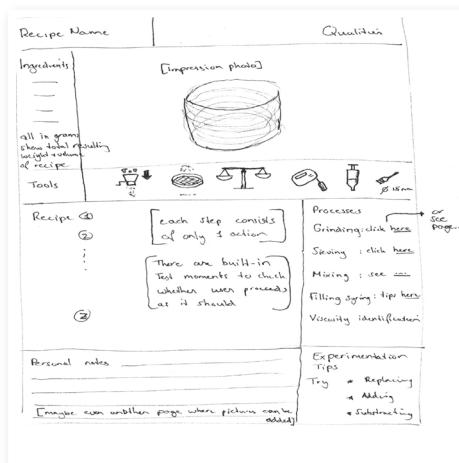 Recipe Name
Qualities
Ingredients
[Impression photo]
all in grams
show total resulting
weight + volume
of recipe
Tools
Ø 15mm
Recipe ①
②
each step consists
of only 1 action
There are built-in
Test moments to check
whether user proceeds
as it should
Processes
Grinding: click here
or
see
page...
Sieving : click here
Mixing : see ...
Filling syring : tips here
Viscosity identification
Personal notes
[maybe even another page where pictures can be
added]
Experimentation
Tips
Try * Replacing
* Adding
* Substracting